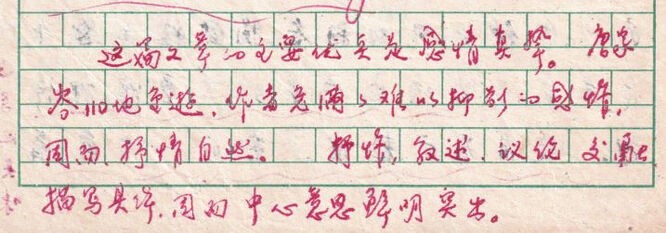 这篇文章的主要优点是感情真挚。
旧地重游,作者充满了难以抑制的感情,
因而,抒情自然。 抒情,叙述,议论交融
描写具体,因而中心意思鲜明突出。